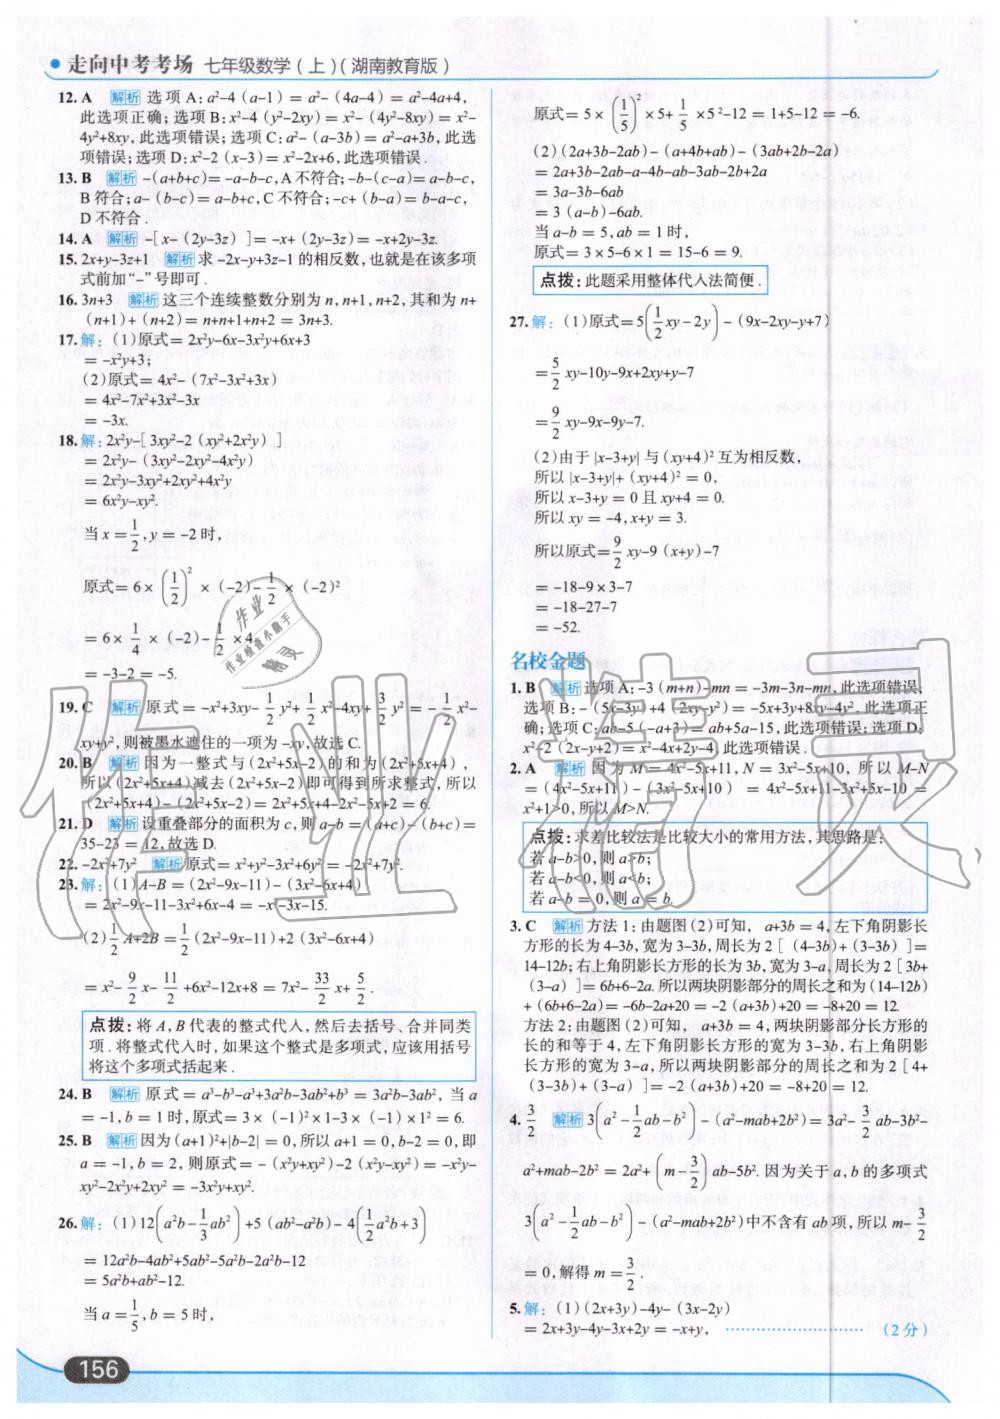 走向中考考场 七年级数学(上)(湖南教育版)
12. A 解析 选项 A: a²-4(a-1) = a²-(4a-4) = a²-4a+4,
此选项正确; 选项 B: x²-4(y²-2xy) = x²-(4y²-8xy) = x²-
4y²+8xy, 此选项错误; 选项 C: a²-(a-3b) = a²-a+3b, 此选
项错误; 选项 D: x²-2(x-3) = x²-2x+6, 此选项错误.
13. B 解析 -(a+b+c)=-a-b-c, A 不符合; -b-(c-a)=a-b-c,
B 符合; a-(b-c)=a-b+c, C 不符合; -c+(b-a)=b-a-c,
D 不符合.
14. A 解析 -[x-(2y-3z)]=-x+(2y-3z)=-x+2y-3z.
15. 2x+y-3z+1 解析 求 -2x-y+3z-1 的相反数, 也就是在该多项
式前加“-”号即可.
16. 3n+3 解析 这三个连续整数分别为 n, n+1, n+2, 其和为 n+
(n+1)+(n+2) = n+n+1+n+2 = 3n+3.
17. 解: (1)原式= 2x²y-6x-3x²y+6x+3
= -x²y+3;
(2)原式= 4x²-(7x²-3x²+3x)
= 4x²-7x²+3x²-3x
= -3x.
18. 解: 2x²y-[3xy²-2(xy²+2x²y)]
= 2x²y-(3xy²-2xy²-4x²y)
= 2x²y-3xy²+2xy²+4x²y
= 6x²y-xy².
当 x = 1/2, y = -2 时,
原式= 6×(1/2)²×(-2)-1/2×(-2)²
= 6×1/4×(-2)-1/2×4
= -3-2 = -5.
19. C 解析 原式= -x²+3xy-1/2y²+1/2x²-4xy+3/2y² = -1/2x²-
xy+y², 则被墨水遮住的一项为 -xy, 故选 C.
20. B 解析 因为一整式与(2x²+5x-2)的和为(2x²+5x+4),
所以(2x²+5x+4)减去(2x²+5x-2)即可得到所求整式, 所以
(2x²+5x+4)-(2x²+5x-2)= 2x²+5x+4-2x²-5x+2 = 6.
21. D 解析 设重叠部分的面积为 c, 则 a-b=(a+c)-(b+c)=
35-23 = 12, 故选 D.
22. -2x²+7y² 解析 原式= x²+y²-3x²+6y² = -2x²+7y².
23. 解: (1)A-B=(2x²-9x-11)-(3x²-6x+4)
= 2x²-9x-11-3x²+6x-4 = -x²-3x-15.
(2)1/2A+2B = 1/2(2x²-9x-11)+2(3x²-6x+4)
= x²-9/2x-11/2+6x²-12x+8 = 7x²-33/2x+5/2.
点拨: 将 A, B 代表的整式代入, 然后去括号、合并同类
项. 将整式代入时, 如果这个整式是多项式, 应该用括号
将这个多项式括起来.
24. B 解析 原式= a³-b³-a³+3a²b-3ab²+b³ = 3a²b-3ab², 当 a
= -1, b = 1 时, 原式= 3×(-1)²×1-3×(-1)×1² = 6.
25. B 解析 因为(a+1)²+|b-2| = 0, 所以 a+1 = 0, b-2 = 0, 即
a = -1, b = 2, 则原式= -(x²y+xy²)-2(x²y-xy²)= -x²y-
xy²-2x²y+2xy² = -3x²y+xy².
26. 解: (1)12(a²b-1/3ab²)+5(ab²-a²b)-4(1/2a²b+3)
= 12a²b-4ab²+5ab²-5a²b-2a²b-12
= 5a²b+ab²-12.
当 a=1/5, b = 5 时,
原式= 5×(1/5)²×5+1/5×5²-12 = 1+5-12 = -6.
(2)(2a+3b-2ab)-(a+4b+ab)-(3ab+2b-2a)
= 2a+3b-2ab-a-4b-ab-3ab-2b+2a
= 3a-3b-6ab
= 3(a-b)-6ab.
当 a-b = 5, ab = 1 时,
原式= 3×5-6×1 = 15-6 = 9.
点拨: 此题采用整体代入法简便.
27. 解: (1)原式= 5(1/2xy-2y)-(9x-2xy-y+7)
= 5/2xy-10y-9x+2xy+y-7
= 9/2xy-9x-9y-7.
(2)由于|x-3+y|与(xy+4)²互为相反数,
所以|x-3+y|+(xy+4)² = 0,
所以 x-3+y = 0 且 xy+4 = 0.
所以 xy = -4, x+y = 3.
所以原式= 9/2xy-9(x+y)-7
= -18-9×3-7
= -18-27-7
= -52.
名校金题
1. B 解析 选项 A: -3(m+n)-mn = -3m-3n-mn, 此选项错误;
选项 B: -(5x-3y)+4(2xy-y²) = -5x+3y+8xy-4y², 此选项正
确; 选项 C: ab-5(-a+3)= ab+5a-15, 此选项错误; 选项 D:
x²-2(2x-y+2)= x²-4x+2y-4, 此选项错误.
2. A 解析 因为 M = 4x²-5x+11, N = 3x²-5x+10, 所以 M-N
= (4x²-5x+11)-(3x²-5x+10) = 4x²-5x+11-3x²+5x-10 =
x²+1>0, 所以 M>N.
点拨: 求差比较法是比较大小的常用方法, 其思路是:
若 a-b>0, 则 a>b;
若 a-b<0, 则 a<b;
若 a-b = 0, 则 a = b.
3. C 解析 方法 1: 由题图(2)可知, a+3b = 4, 左下角阴影长
方形的长为 4-3b, 宽为 3-3b, 周长为 2[(4-3b)+(3-3b)]=
14-12b; 右上角阴影长方形的长为 3b, 宽为 3-a, 周长为 2[3b+
(3-a)]= 6b+6-2a. 所以两块阴影部分的周长之和为(14-12b)
+(6b+6-2a)= -6b-2a+20 = -2(a+3b)+20 = -8+20 = 12.
方法 2: 由题图(2)可知, a+3b = 4, 两块阴影部分长方形的
长的和等于 4, 左下角阴影长方形的宽为 3-3b, 右上角阴影
长方形的宽为 3-a, 所以两块阴影部分的周长之和为 2[4+
(3-3b)+(3-a)]= -2(a+3b)+20 = -8+20 = 12.
4. 3/2 解析 3(a²-1/2ab-b²)-(a²-mab+2b²)= 3a²-3/2ab-3b²-
a²+mab-2b² = 2a²+(m-3/2)ab-5b². 因为关于 a, b 的多项式
3(a²-1/2ab-b²)-(a²-mab+2b²)中不含有 ab 项, 所以 m-3/2
= 0, 解得 m = 3/2.
5. 解: (1)(2x+3y)-4y-(3x-2y)
= 2x+3y-4y-3x+2y = -x+y, ……………………(2 分)
156
作业
作业检查小助手
精灵
作业精灵